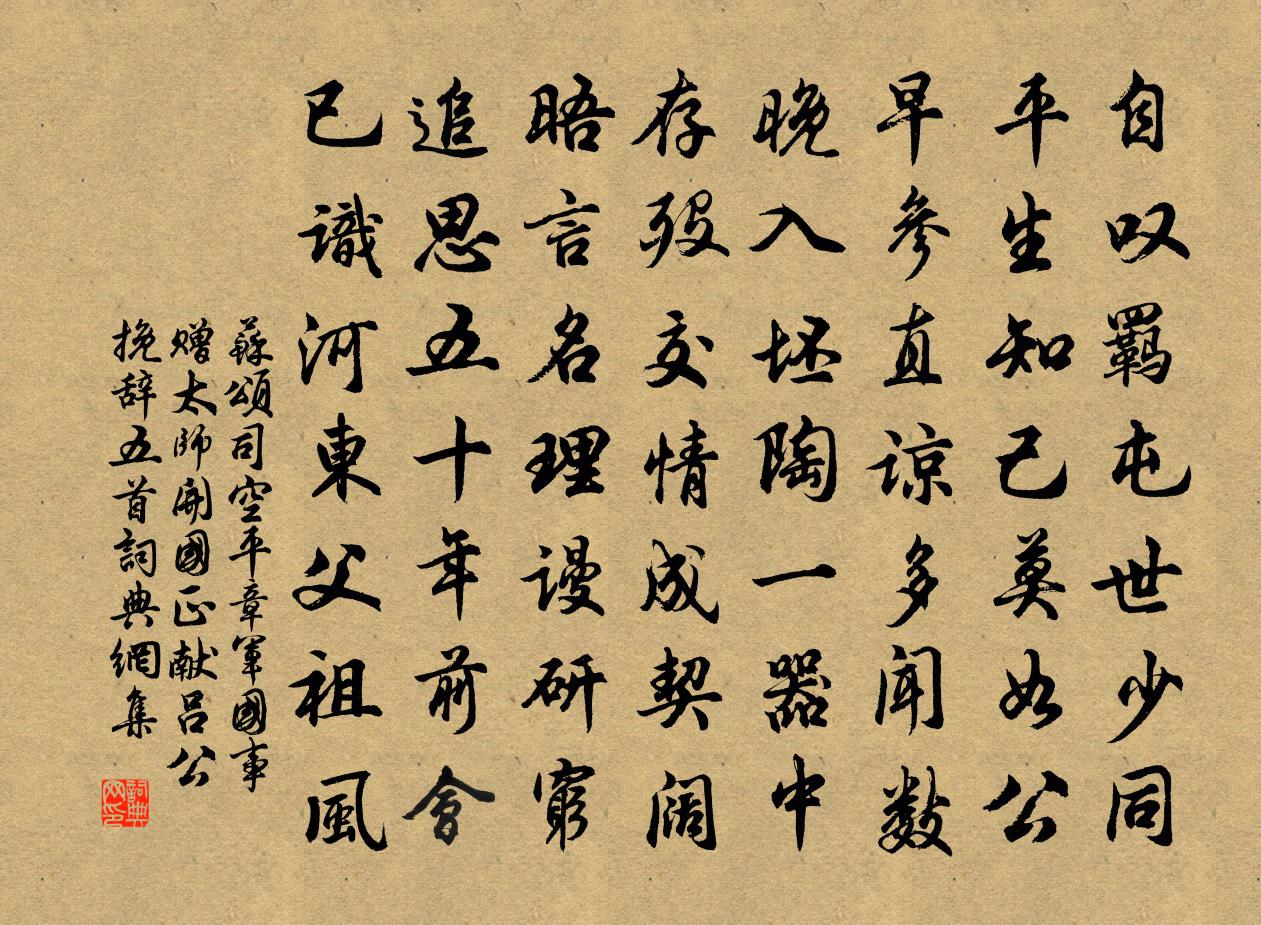 自叹羈屯世少同
平生知己莫如公
早參直諒多聞數
晚入坯陶一器中
存歿交情成契阔
晤言名理谩研窮
追思五十年前會
已識河東父祖風
蘇頌司空平章軍國事
赠太師開國正献吕公
挽辞五首詞典網集
詞典
网印